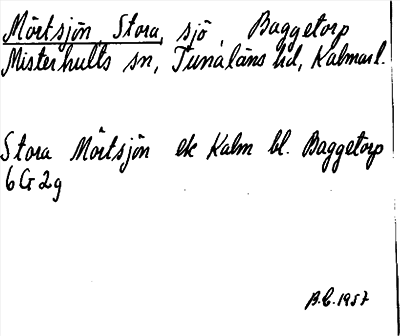 Mörtsjön, Stora, sjö, Baggetorp
Misterhults sn, Tunaläns hd, Kalmar l.
Stora Mörtsjön ek Kalm bl. Baggetorp
6G2g
B.C. 1957